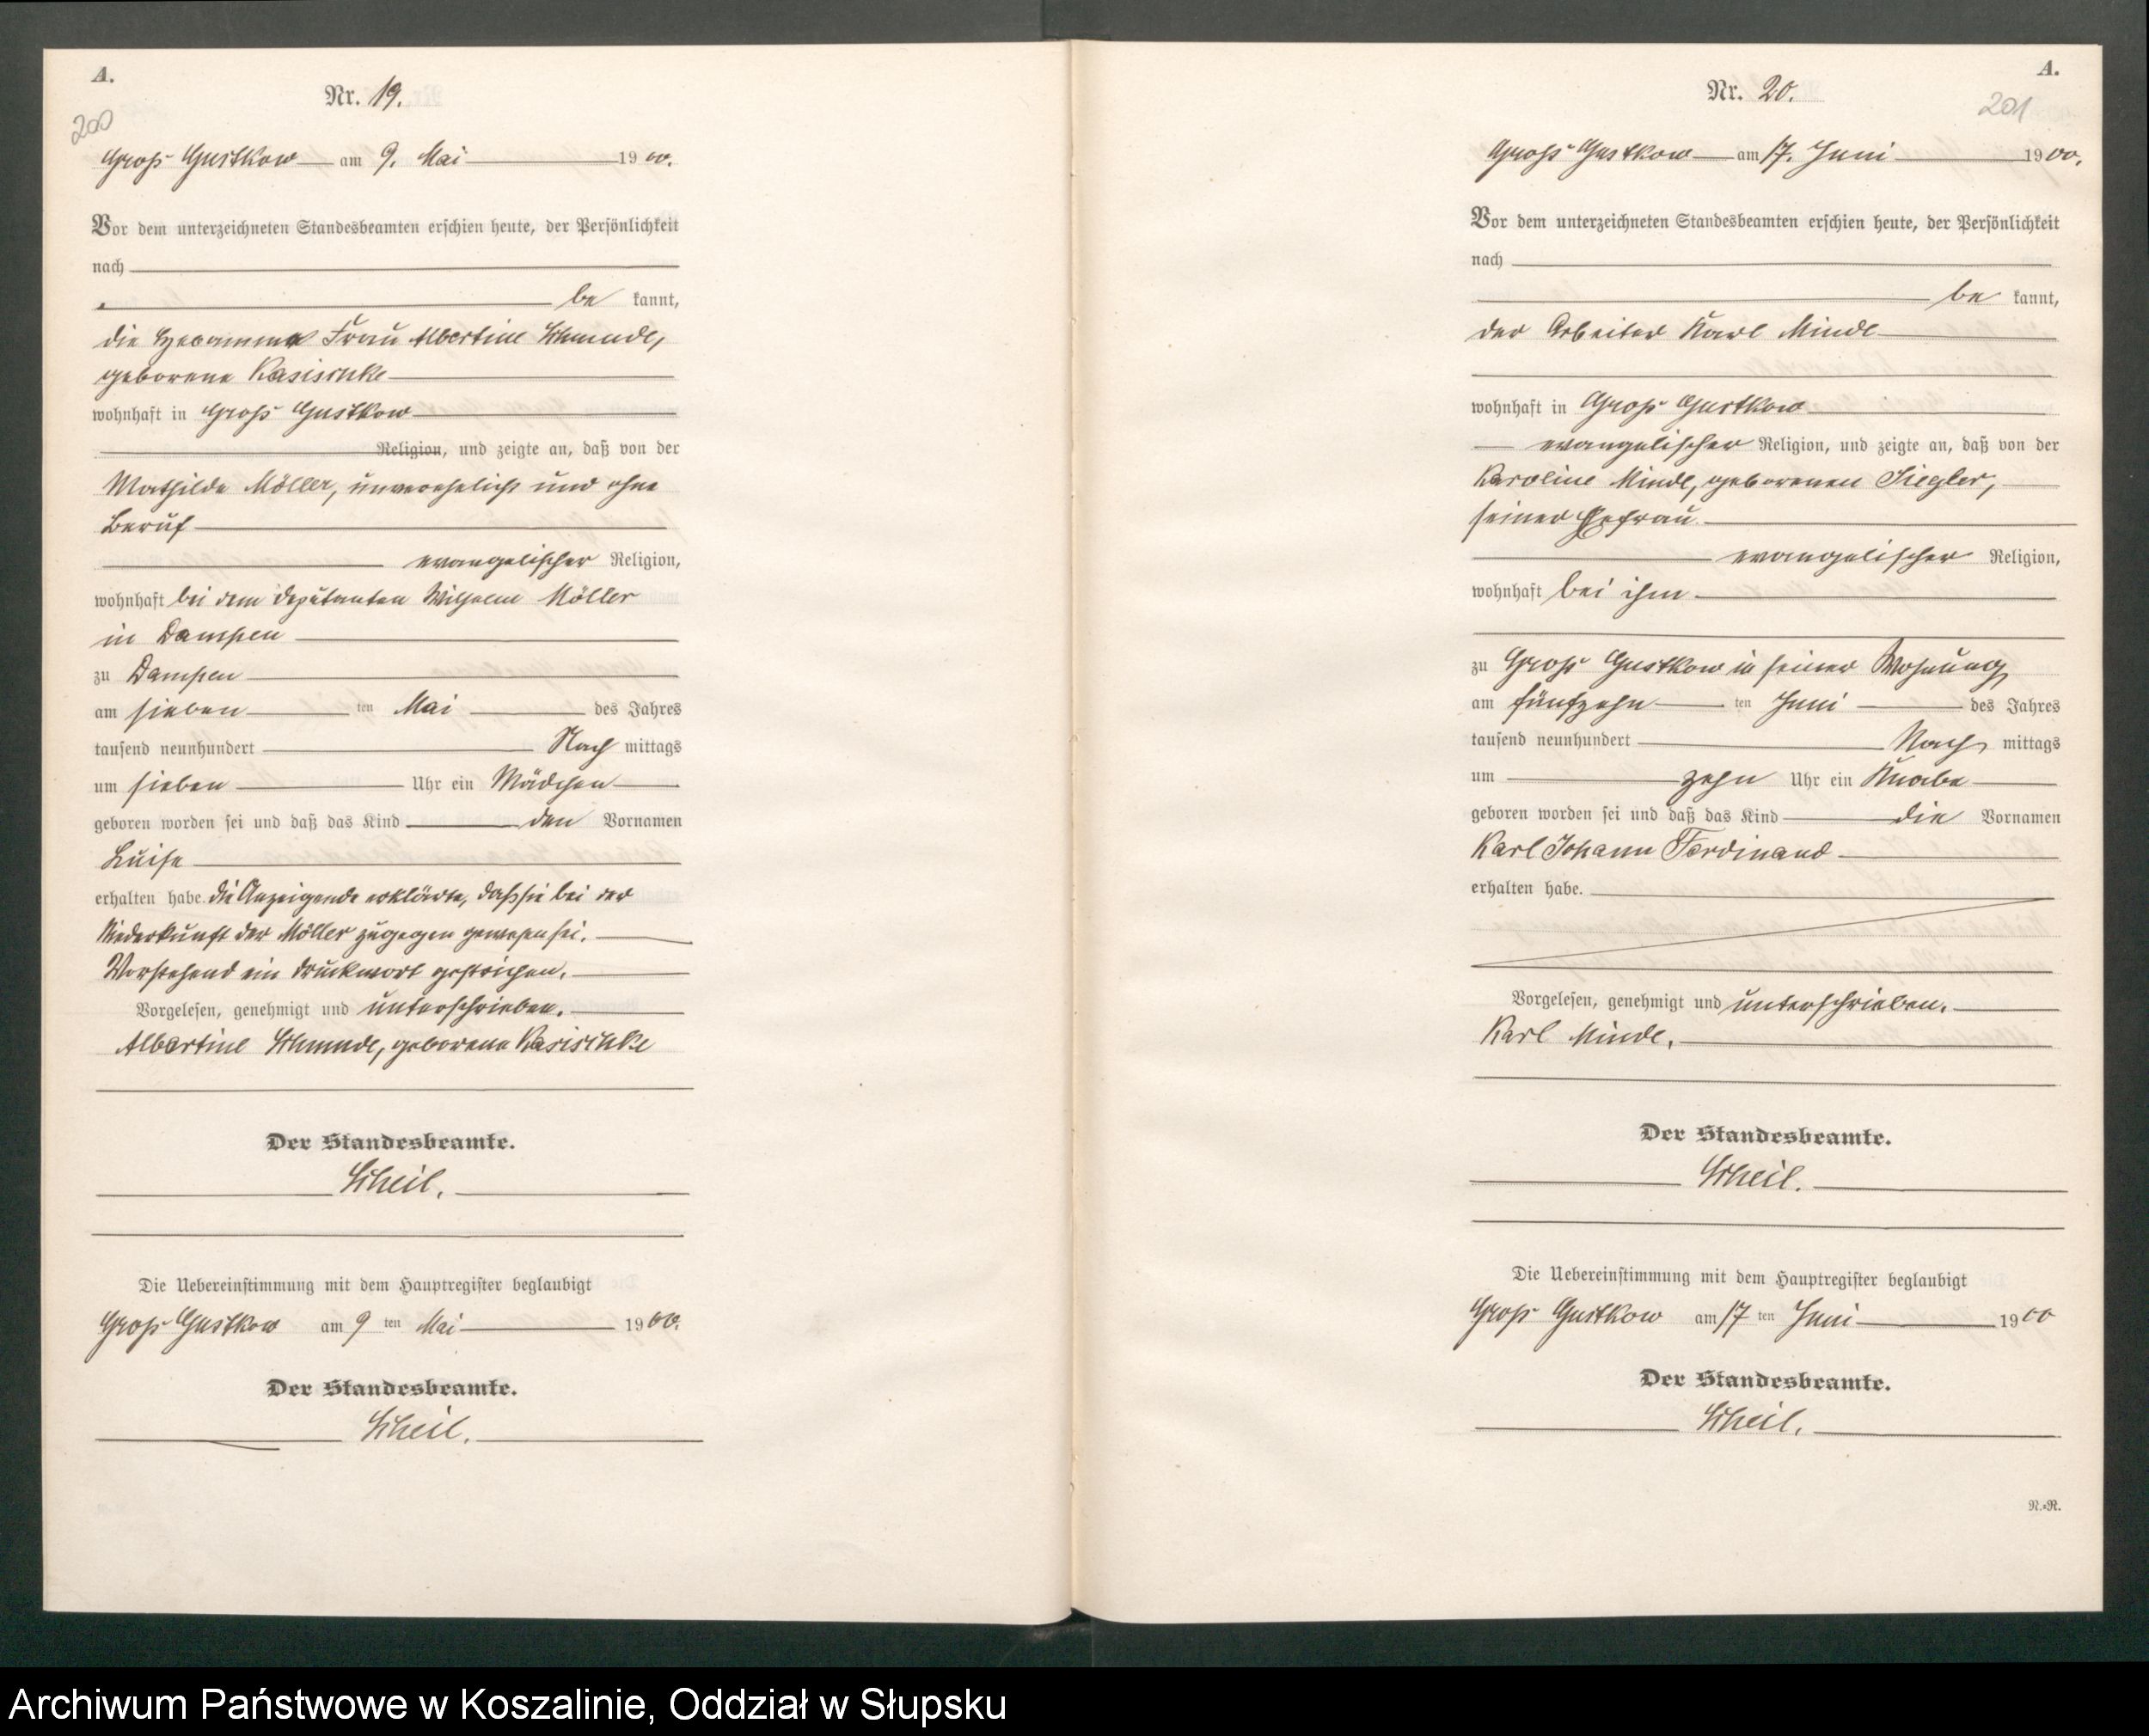 A.
Nr. 19.
200
Groß Gustkow am 9. Mai 1900.
Vor dem unterzeichneten Standesbeamten erschien heute, der Persönlichkeit
nach
be kannt,
die Hebamme Frau Albertine Schmude,
geborene Kasischke
wohnhaft in Groß Gustkow
Religion, und zeigte an, daß von der
Mathilde Möller, unverehelicht und ohne
Beruf
evangelischer Religion,
wohnhaft bei dem Deputanten Wilhelm Möller
in Dampen
zu Dampen
am sieben ten Mai des Jahres
tausend neunhundert Nach mittags
um sieben Uhr ein Mädchen
geboren worden sei und daß das Kind den Vornamen
Luise
erhalten habe. Die Anzeigende erklärte, daß sie bei der
Niederkunft der Möller zugegen gewesen sei.
Vorstehend ein Druckwort gestrichen.
Vorgelesen, genehmigt und unterschrieben.
Albertine Schmude, geborene Kasischke
Der Standesbeamte.
Scheil.
Die Uebereinstimmung mit dem Hauptregister beglaubigt
Groß Gustkow am 9 ten Mai 1900.
Der Standesbeamte.
Scheil.
A.
Nr. 20.
201
Groß Gustkow am 17. Juni 1900.
Vor dem unterzeichneten Standesbeamten erschien heute, der Persönlichkeit
nach
be kannt,
der Arbeiter Karl Minde
wohnhaft in Groß Gustkow
evangelischer Religion, und zeigte an, daß von der
Karoline Minde, geborenen Siegler,
seiner Ehefrau
evangelischer Religion,
wohnhaft bei ihm
zu Groß Gustkow in seiner Wohnung
am fünfzehn ten Juni des Jahres
tausend neunhundert Nach mittags
um zehn Uhr ein Knabe
geboren worden sei und daß das Kind die Vornamen
Karl Johann Ferdinand
erhalten habe.
Vorgelesen, genehmigt und unterschrieben.
Karl Minde.
Der Standesbeamte.
Scheil.
Die Uebereinstimmung mit dem Hauptregister beglaubigt
Groß Gustkow am 17 ten Juni 1900
Der Standesbeamte.
Scheil.
R.-R.
Archiwum Państwowe w Koszalinie, Oddział w Słupsku